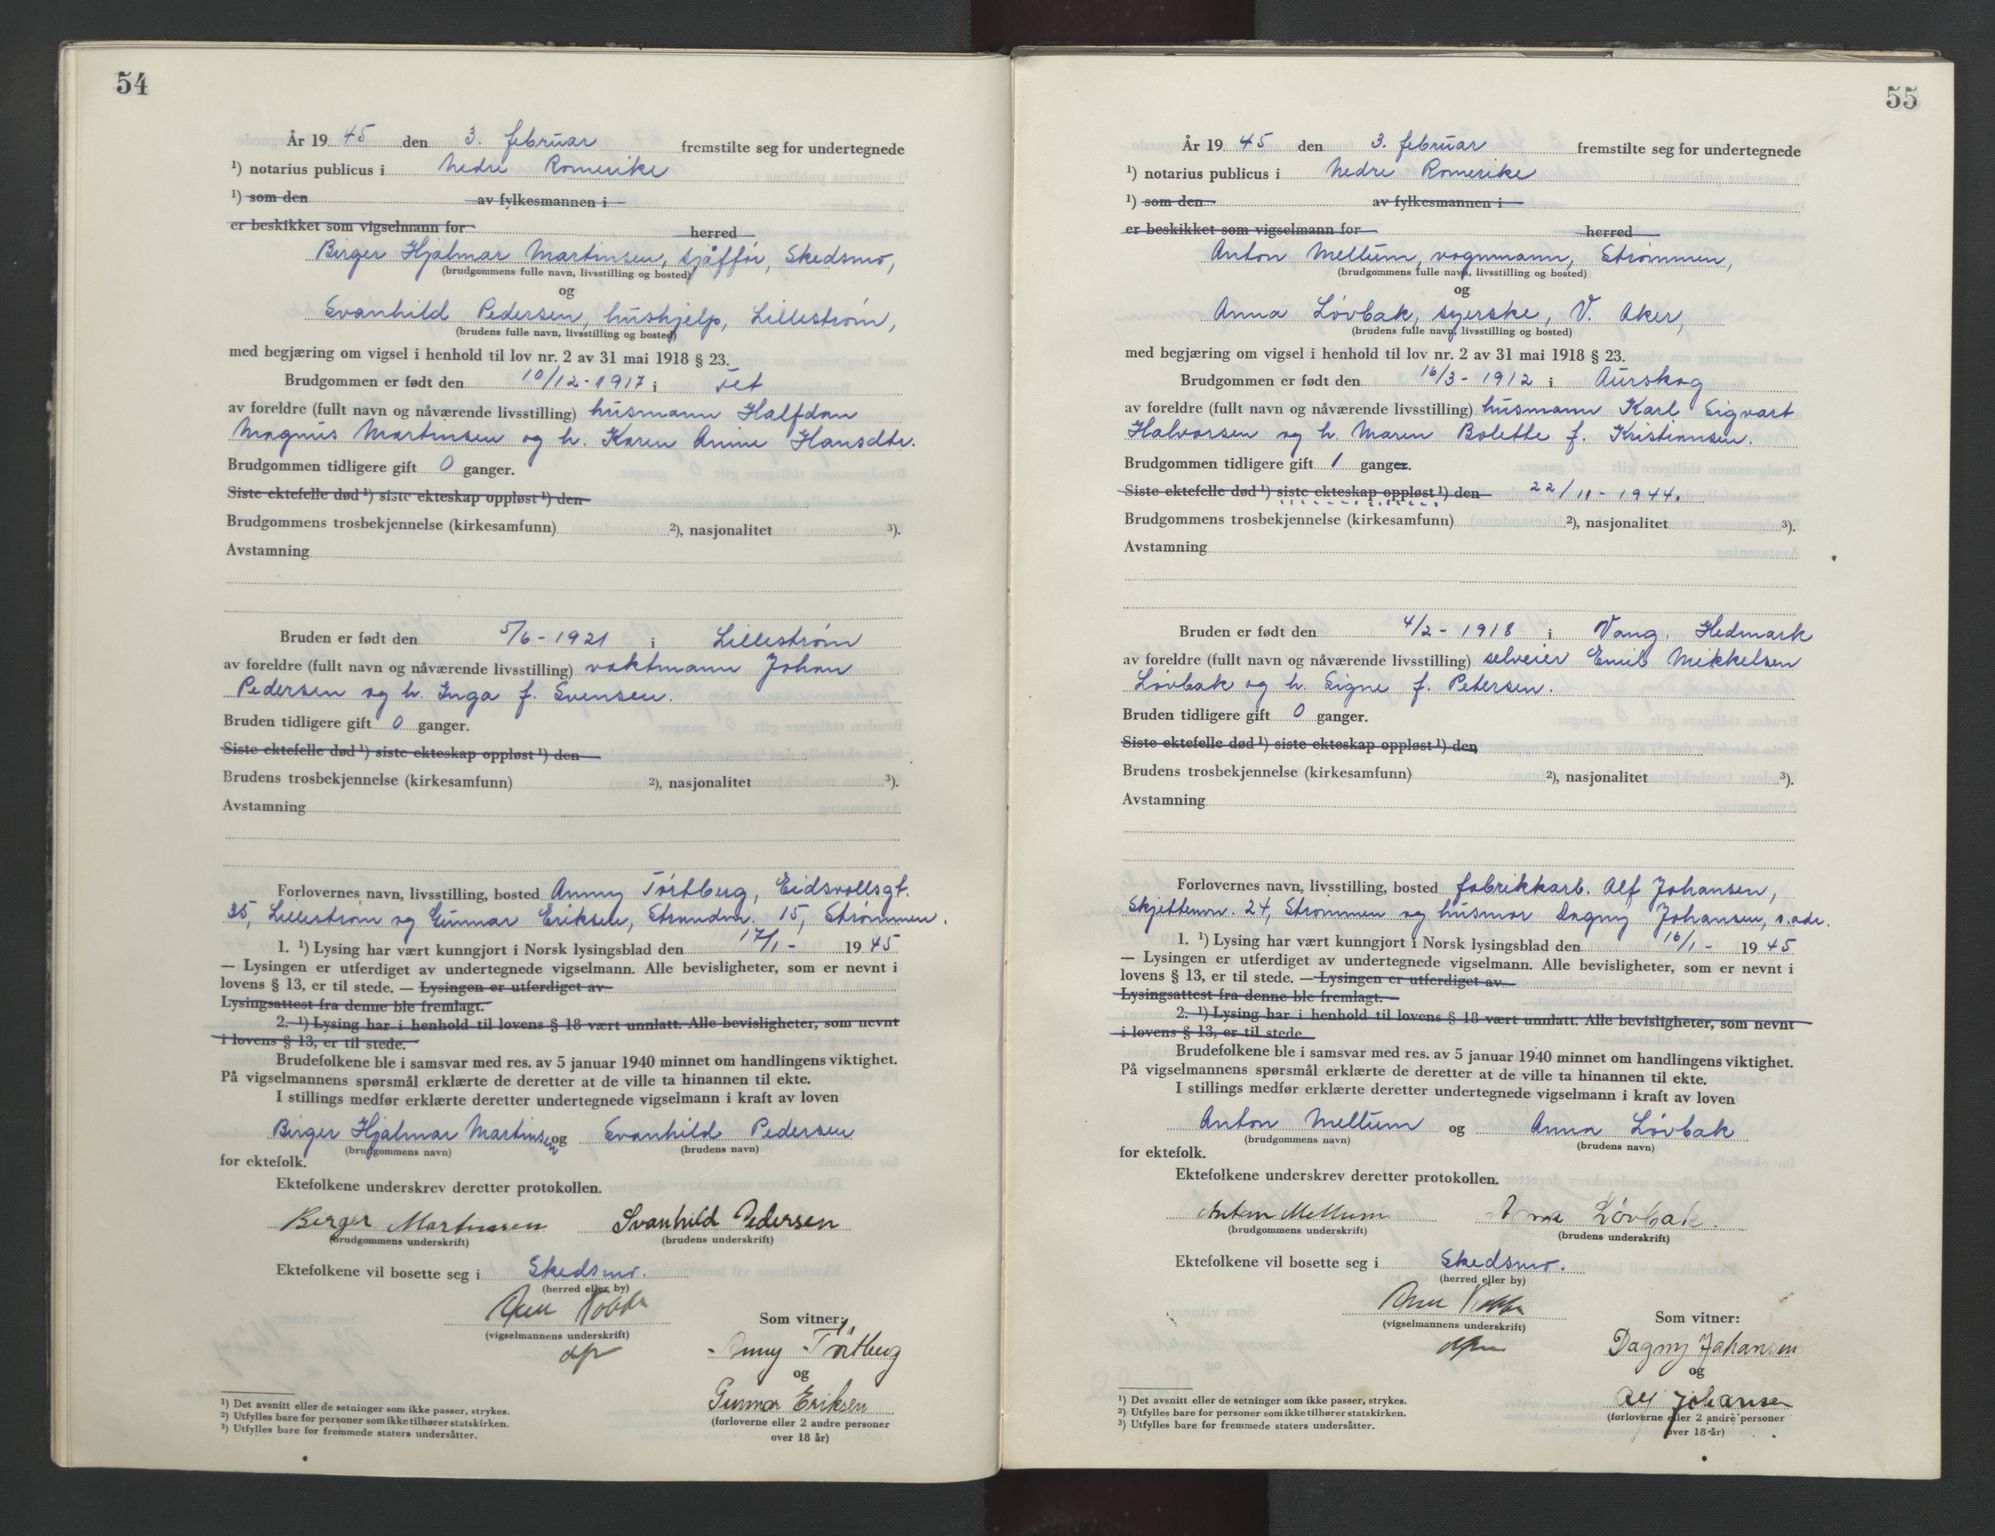 54
År 19 45 den 3. februar fremstilte seg for undertegnede
¹) notarius publicus i Nedre Romerike
¹) som den av fylkesmannen i
er beskikket som vigselmann for herred
Birger Hjalmar Martinsen, sjåffør, Skedsmo,
(brudgommens fulle navn, livsstilling og bosted)
og
Svanhild Pedersen, hushjelp, Lillestrøm,
(brudens fulle navn, livsstilling og bosted)
med begjæring om vigsel i henhold til lov nr. 2 av 31 mai 1918 § 23.
Brudgommen er født den 10/12 - 1917 i Fet
av foreldre (fullt navn og nåværende livsstilling) husmann Halfdan
Magnus Martinsen og h. Karen Anine Hansdtr.
Brudgommen tidligere gift 0 ganger.
Siste ektefelle død ¹) siste ekteskap oppløst ¹) den
Brudgommens trosbekjennelse (kirkesamfunn) ²), nasjonalitet ³).
Avstamning
Bruden er født den 5/6 - 1921 i Lillestrøm
av foreldre (fullt navn og nåværende livsstilling) vaktmann Johan
Pedersen og h. Inga f. Svensen.
Bruden tidligere gift 0 ganger.
Siste ektefelle død ¹) siste ekteskap oppløst ¹) den
Brudens trosbekjennelse (kirkesamfunn) ²), nasjonalitet ³).
Avstamning
Forlovernes navn, livsstilling, bosted Anny Tørtberg, Eidsvollsgt.
35, Lillestrøm og Gunnar Eriksen, Strandvn. 15, Strømmen.
1. ¹) Lysing har vært kunngjort i Norsk lysingsblad den 17/1 - 19 45
— Lysingen er utferdiget av undertegnede vigselmann. Alle bevisligheter, som er nevnt i
lovens § 13, er til stede. — Lysingen er utferdiget av
Lysingsattest fra denne ble fremlagt.
2. ¹) Lysing har i henhold til lovens § 18 vært unnlatt. Alle bevisligheter, som nevnt
i lovens § 13, er til stede.
Brudefolkene ble i samsvar med res. av 5 januar 1940 minnet om handlingens viktighet.
På vigselmannens spørsmål erklærte de deretter at de ville ta hinannen til ekte.
I stillings medfør erklærte deretter undertegnede vigselmann i kraft av loven
Birger Hjalmar Martinsen og Svanhild Pedersen
(brudgommens navn) (brudens navn)
for ektefolk.
Ektefolkene underskrev deretter protokollen.
Birger Martinsen Svanhild Pedersen
(brudgommens underskrift) (brudens underskrift)
Ektefolkene vil bosette seg i Skedsmo.
(herred eller by)
(vigselmannens underskrift)
Som vitner:
Anny Tørtberg
og
Gunnar Eriksen
(forloverne eller 2 andre personer
over 18 år)
¹) Det avsnitt eller de setninger som ikke passer, strykes.
²) Utfylles bare for personer som ikke tilhører statskirken.
³) Utfylles bare for fremmede staters undersåtter.
55
År 19 45 den 3. februar fremstilte seg for undertegnede
¹) notarius publicus i Nedre Romerike
¹) som den av fylkesmannen i
er beskikket som vigselmann for herred
Anton Mellum, vognmann, Strømmen,
(brudgommens fulle navn, livsstilling og bosted)
og
Anna Løvbak, syerske, V. Aker,
(brudens fulle navn, livsstilling og bosted)
med begjæring om vigsel i henhold til lov nr. 2 av 31 mai 1918 § 23.
Brudgommen er født den 16/3 - 1912 i Aurskog
av foreldre (fullt navn og nåværende livsstilling) husmann Karl Sigvart
Halvorsen og h. Maren Bolette f. Kristiansen.
Brudgommen tidligere gift 1 ganger.
Siste ektefelle død ¹) siste ekteskap oppløst ¹) den 22/11 - 1944.
Brudgommens trosbekjennelse (kirkesamfunn) ²), nasjonalitet ³).
Avstamning
Bruden er født den 4/2 - 1918 i Vang, Hedmark
av foreldre (fullt navn og nåværende livsstilling) selveier Emil Mikkelsen
Løvbak og h. Signe f. Petersen.
Bruden tidligere gift 0 ganger.
Siste ektefelle død ¹) siste ekteskap oppløst ¹) den
Brudens trosbekjennelse (kirkesamfunn) ²), nasjonalitet ³).
Avstamning
Forlovernes navn, livsstilling, bosted fabrikkarb. Alf Johansen,
Skjettenvn. 24, Strømmen og husmor Dagny Johansen, s. adr.
1. ¹) Lysing har vært kunngjort i Norsk lysingsblad den 16/1 - 19 45
— Lysingen er utferdiget av undertegnede vigselmann. Alle bevisligheter, som er nevnt i
lovens § 13, er til stede. — Lysingen er utferdiget av
Lysingsattest fra denne ble fremlagt.
2. ¹) Lysing har i henhold til lovens § 18 vært unnlatt. Alle bevisligheter, som nevnt
i lovens § 13, er til stede.
Brudefolkene ble i samsvar med res. av 5 januar 1940 minnet om handlingens viktighet.
På vigselmannens spørsmål erklærte de deretter at de ville ta hinannen til ekte.
I stillings medfør erklærte deretter undertegnede vigselmann i kraft av loven
Anton Mellum og Anna Løvbak
(brudgommens navn) (brudens navn)
for ektefolk.
Ektefolkene underskrev deretter protokollen.
Anton Mellum Anna Løvbak.
(brudgommens underskrift) (brudens underskrift)
Ektefolkene vil bosette seg i Skedsmo.
(herred eller by)
(vigselmannens underskrift)
Som vitner:
Dagny Johansen
og
Alf Johansen
(forloverne eller 2 andre personer
over 18 år)
¹) Det avsnitt eller de setninger som ikke passer, strykes.
²) Utfylles bare for personer som ikke tilhører statskirken.
³) Utfylles bare for fremmede staters undersåtter.